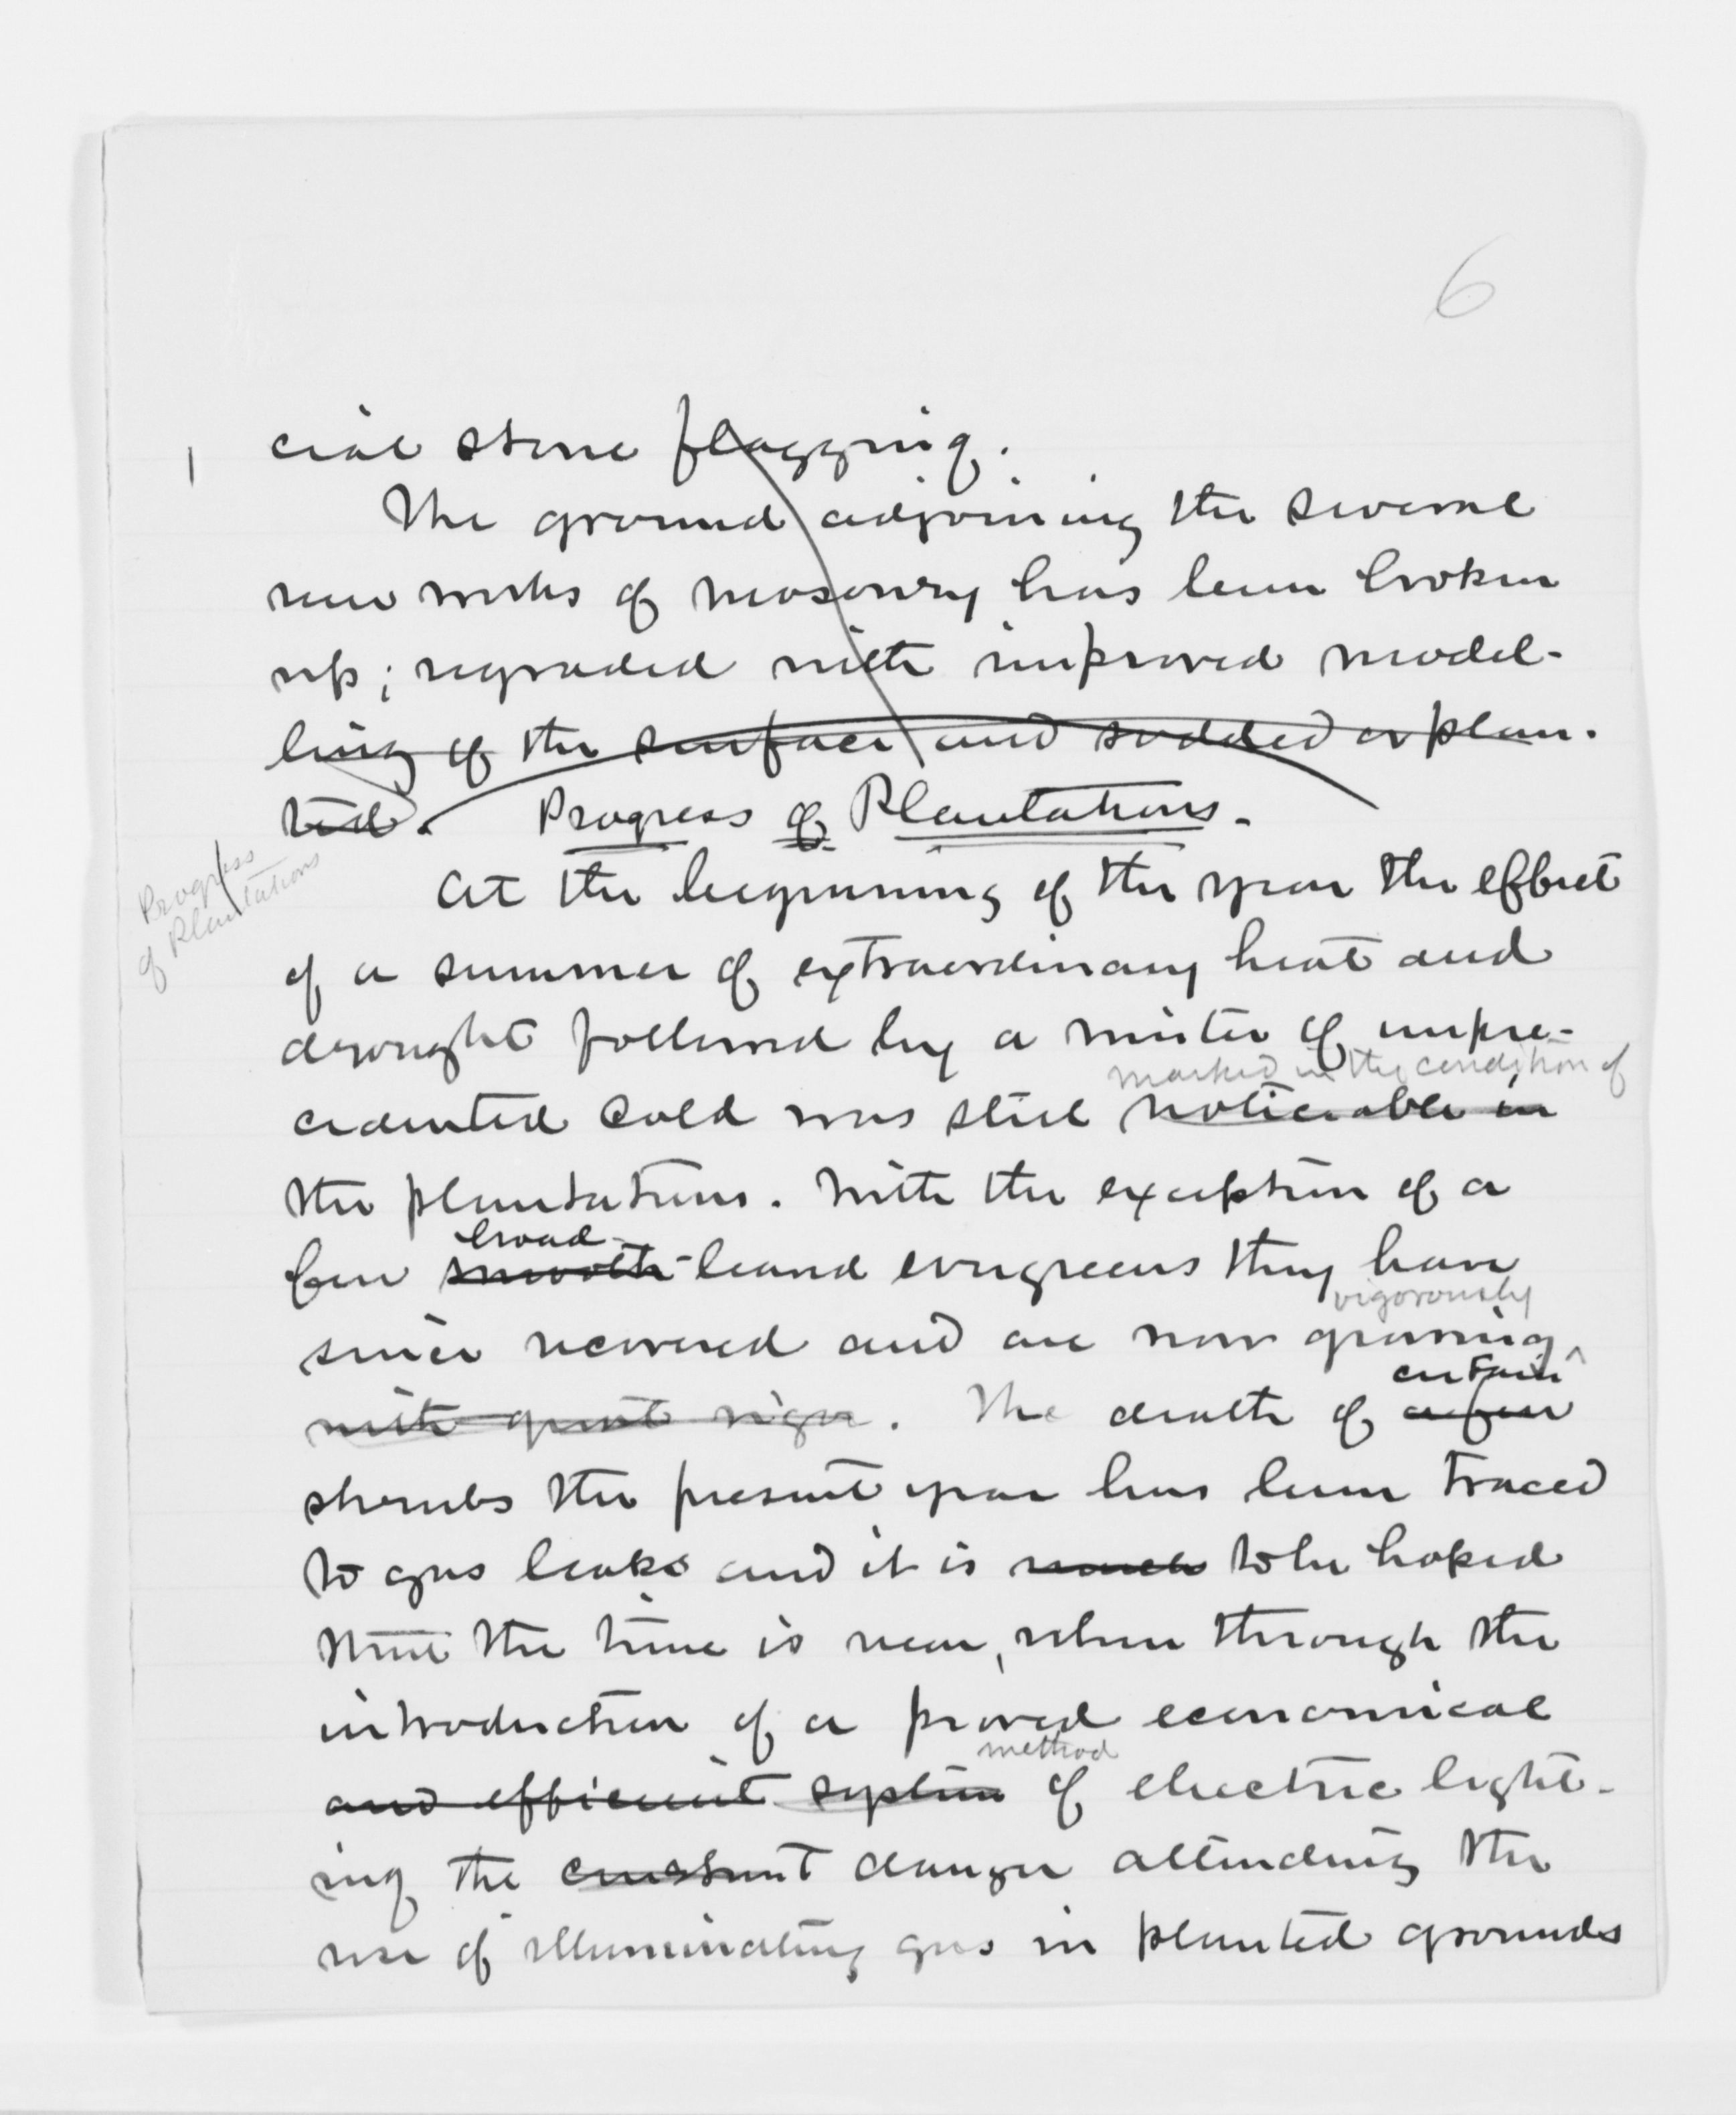 6
cial stone flagging.
The ground adjoining the several
new works of masonry has been broken
up; regraded with improved model-
ling of the surface and sodded or plan-
ted. Progress of Plantations.
Progress
of Plantations
At the beginning of the year the effect
of a summer of extraordinary heat and
drought followed by a winter of unpre-
marked in the condition of
cedented cold was still noticeable in
the plantations. With the exception of a
broad-
few smooth-leaved evergreens they have
vigorously
since recovered and are now growing ^
certain
with great vigor. The death of a few
shrubs the present year has been traced
to gas leaks and it is much to be hoped
that the time is near, when through the
introduction of a proved economical
method
and efficient system of electric light-
ing the constant danger attending the
use of illuminating gas in planted grounds